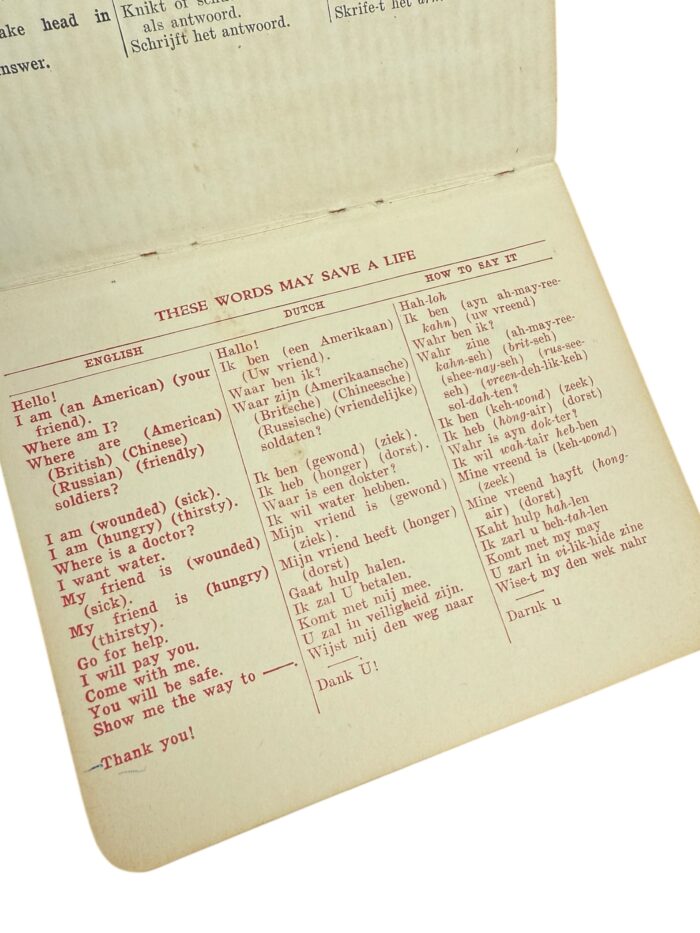 ake head in
nswer.
Knikt of
als antwoord.
Schrijft het antwoord.
Skrife-t het
THESE WORDS MAY SAVE A LIFE
ENGLISH
Hello!
I am (an American) (your
friend).
Where am I?
Where are (American)
(British) (Chinese)
(Russian) (friendly)
soldiers?
I am (wounded) (sick).
I am (hungry) (thirsty).
Where is a doctor?
I want water.
My friend is (wounded)
(sick).
My friend is (hungry)
(thirsty).
Go for help.
I will pay you.
Come with me.
You will be safe.
Show me the way to ——.
Thank you!
DUTCH
Hallo!
Ik ben (een Amerikaan)
(Uw vriend).
Waar ben ik?
Waar zijn (Amerikaansche)
(Britsche) (Chineesche)
(Russische) (vriendelijke)
soldaten?
Ik ben (gewond) (ziek).
Ik heb (honger) (dorst).
Waar is een dokter?
Ik wil water hebben.
Mijn vriend is (gewond)
(ziek).
Mijn vriend heeft (honger)
(dorst)
Gaat hulp halen.
Ik zal U betalen.
Komt met mij mee.
U zal in veiligheid zijn.
Wijst mij den weg naar
——.
Dank U!
HOW TO SAY IT
Hah-loh
Ik ben (ayn ah-may-ree-
kahn) (uw vreend)
Wahr ben ik?
Wahr zine (ah-may-ree-
kahn-seh) (brit-seh)
(shee-nay-seh) (rus-see-
seh) (vreen-deh-lik-keh)
sol-dah-ten?
Ik ben (keh-wond) (zeek)
Ik heb (hong-air) (dorst)
Wahr is ayn dok-ter?
Ik wil wah-tair heb-ben
Mine vreend is (keh-wond)
(zeek)
Mine vreend hayft (hong-
air) (dorst)
Kaht hulp hah-len
Ik zarl u beh-tah-len
Komt met my may
U zarl in vi-lik-hide zine
Wise-t my den wek nahr
——
Darnk u